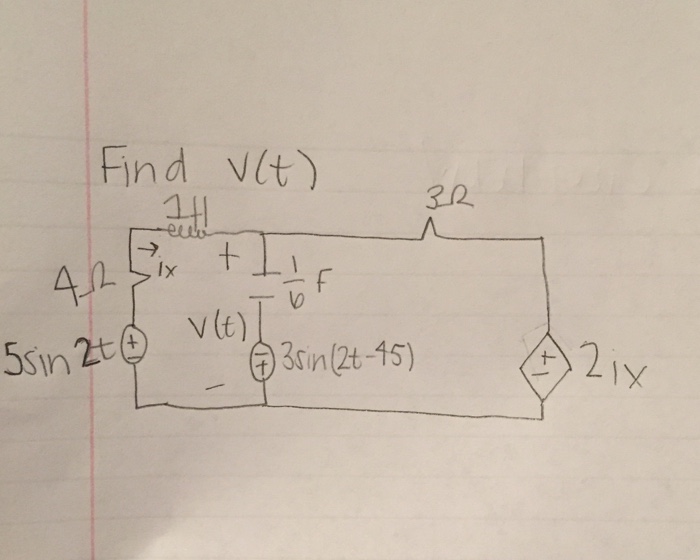 Find V(t)
1H
3Ω
+
→
ix
4Ω
1/6 F
V(t)
5sin2t
+
-
-
+
3sin(2t-45)
+
-
2ix
-